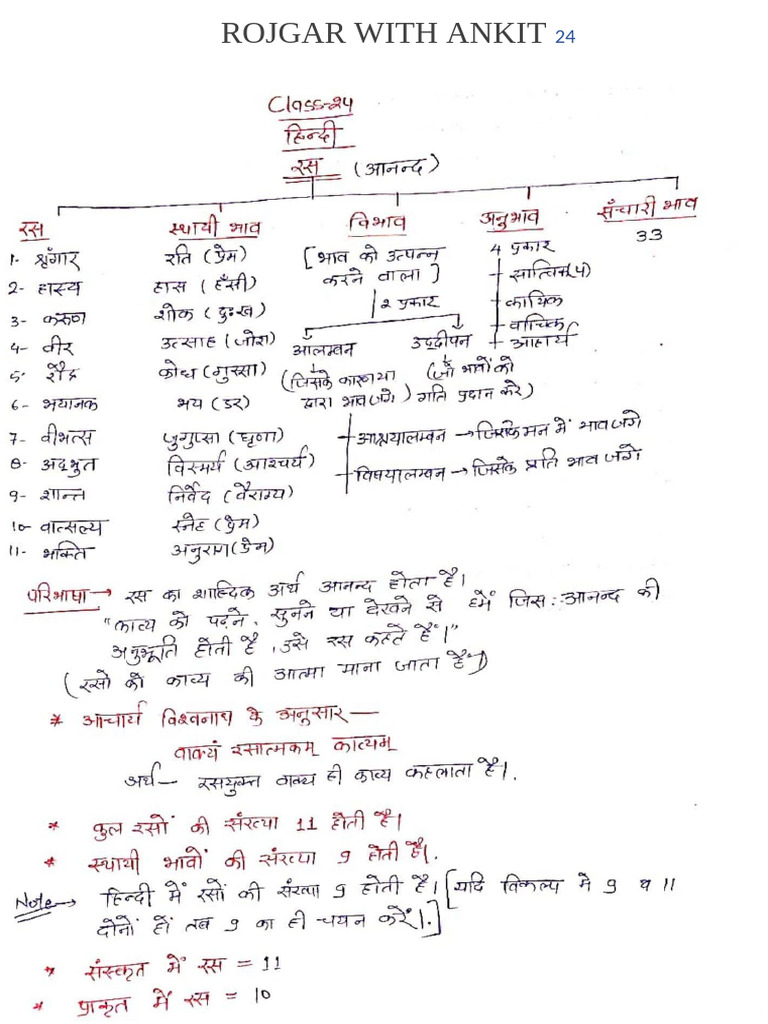 ROJGAR WITH ANKIT 24
Class-24
हिन्दी
रस (आनन्द)
रस
1- श्रृंगार
2- हास्य
3- करुण
4- वीर
5- रौद्र
6- भयानक
7- वीभत्स
8- अद्भुत
9- शान्त
10- वात्सल्य
11- भक्ति
स्थायी भाव
रति (प्रेम)
हास (हँसी)
शोक (दुःख)
उत्साह (जोश)
क्रोध (गुस्सा)
भय (डर)
जुगुप्सा (घृणा)
विस्मर्य (आश्चर्य)
निर्वेद (वैराग्य)
स्नेह (प्रेम)
अनुराग (प्रेम)
विभाव
[भाव को उत्पन्न
करने वाला]
2 प्रकार
आलम्बन
(जिसके कारण या
द्वारा भाव जगे)
उद्दीपन
(जो भावों को
गति प्रदान करे)
आश्रयालम्बन → जिसके मन में भाव जगे
विषयालम्बन → जिसके प्रति भाव जगे
अनुभाव
4 प्रकार
सात्विक
कायिक
वाचिक
आहार्य
संचारी भाव
33
परिभाषा → रस का शाब्दिक अर्थ आनन्द होता है।
"काव्य को पढ़ने, सुनने या देखने से हमें जिस आनन्द की
अनुभूति होती है, उसे रस कहते हैं।"
(रसों को काव्य की आत्मा माना जाता है)
* आचार्य विश्वनाथ के अनुसार —
वाक्यं रसात्मकम् काव्यम्
अर्थ — रसयुक्त वाक्य ही काव्य कहलाता है।
* कुल रसों की संख्या 11 होती है।
* स्थायी भावों की संख्या 9 होती है।
Note → हिन्दी में रसों की संख्या 9 होती है। [यदि विकल्प मे 9 व 11
दोनों हों तब 9 का ही चयन करें।]
* संस्कृत में रस = 11
* प्राकृत में रस = 10